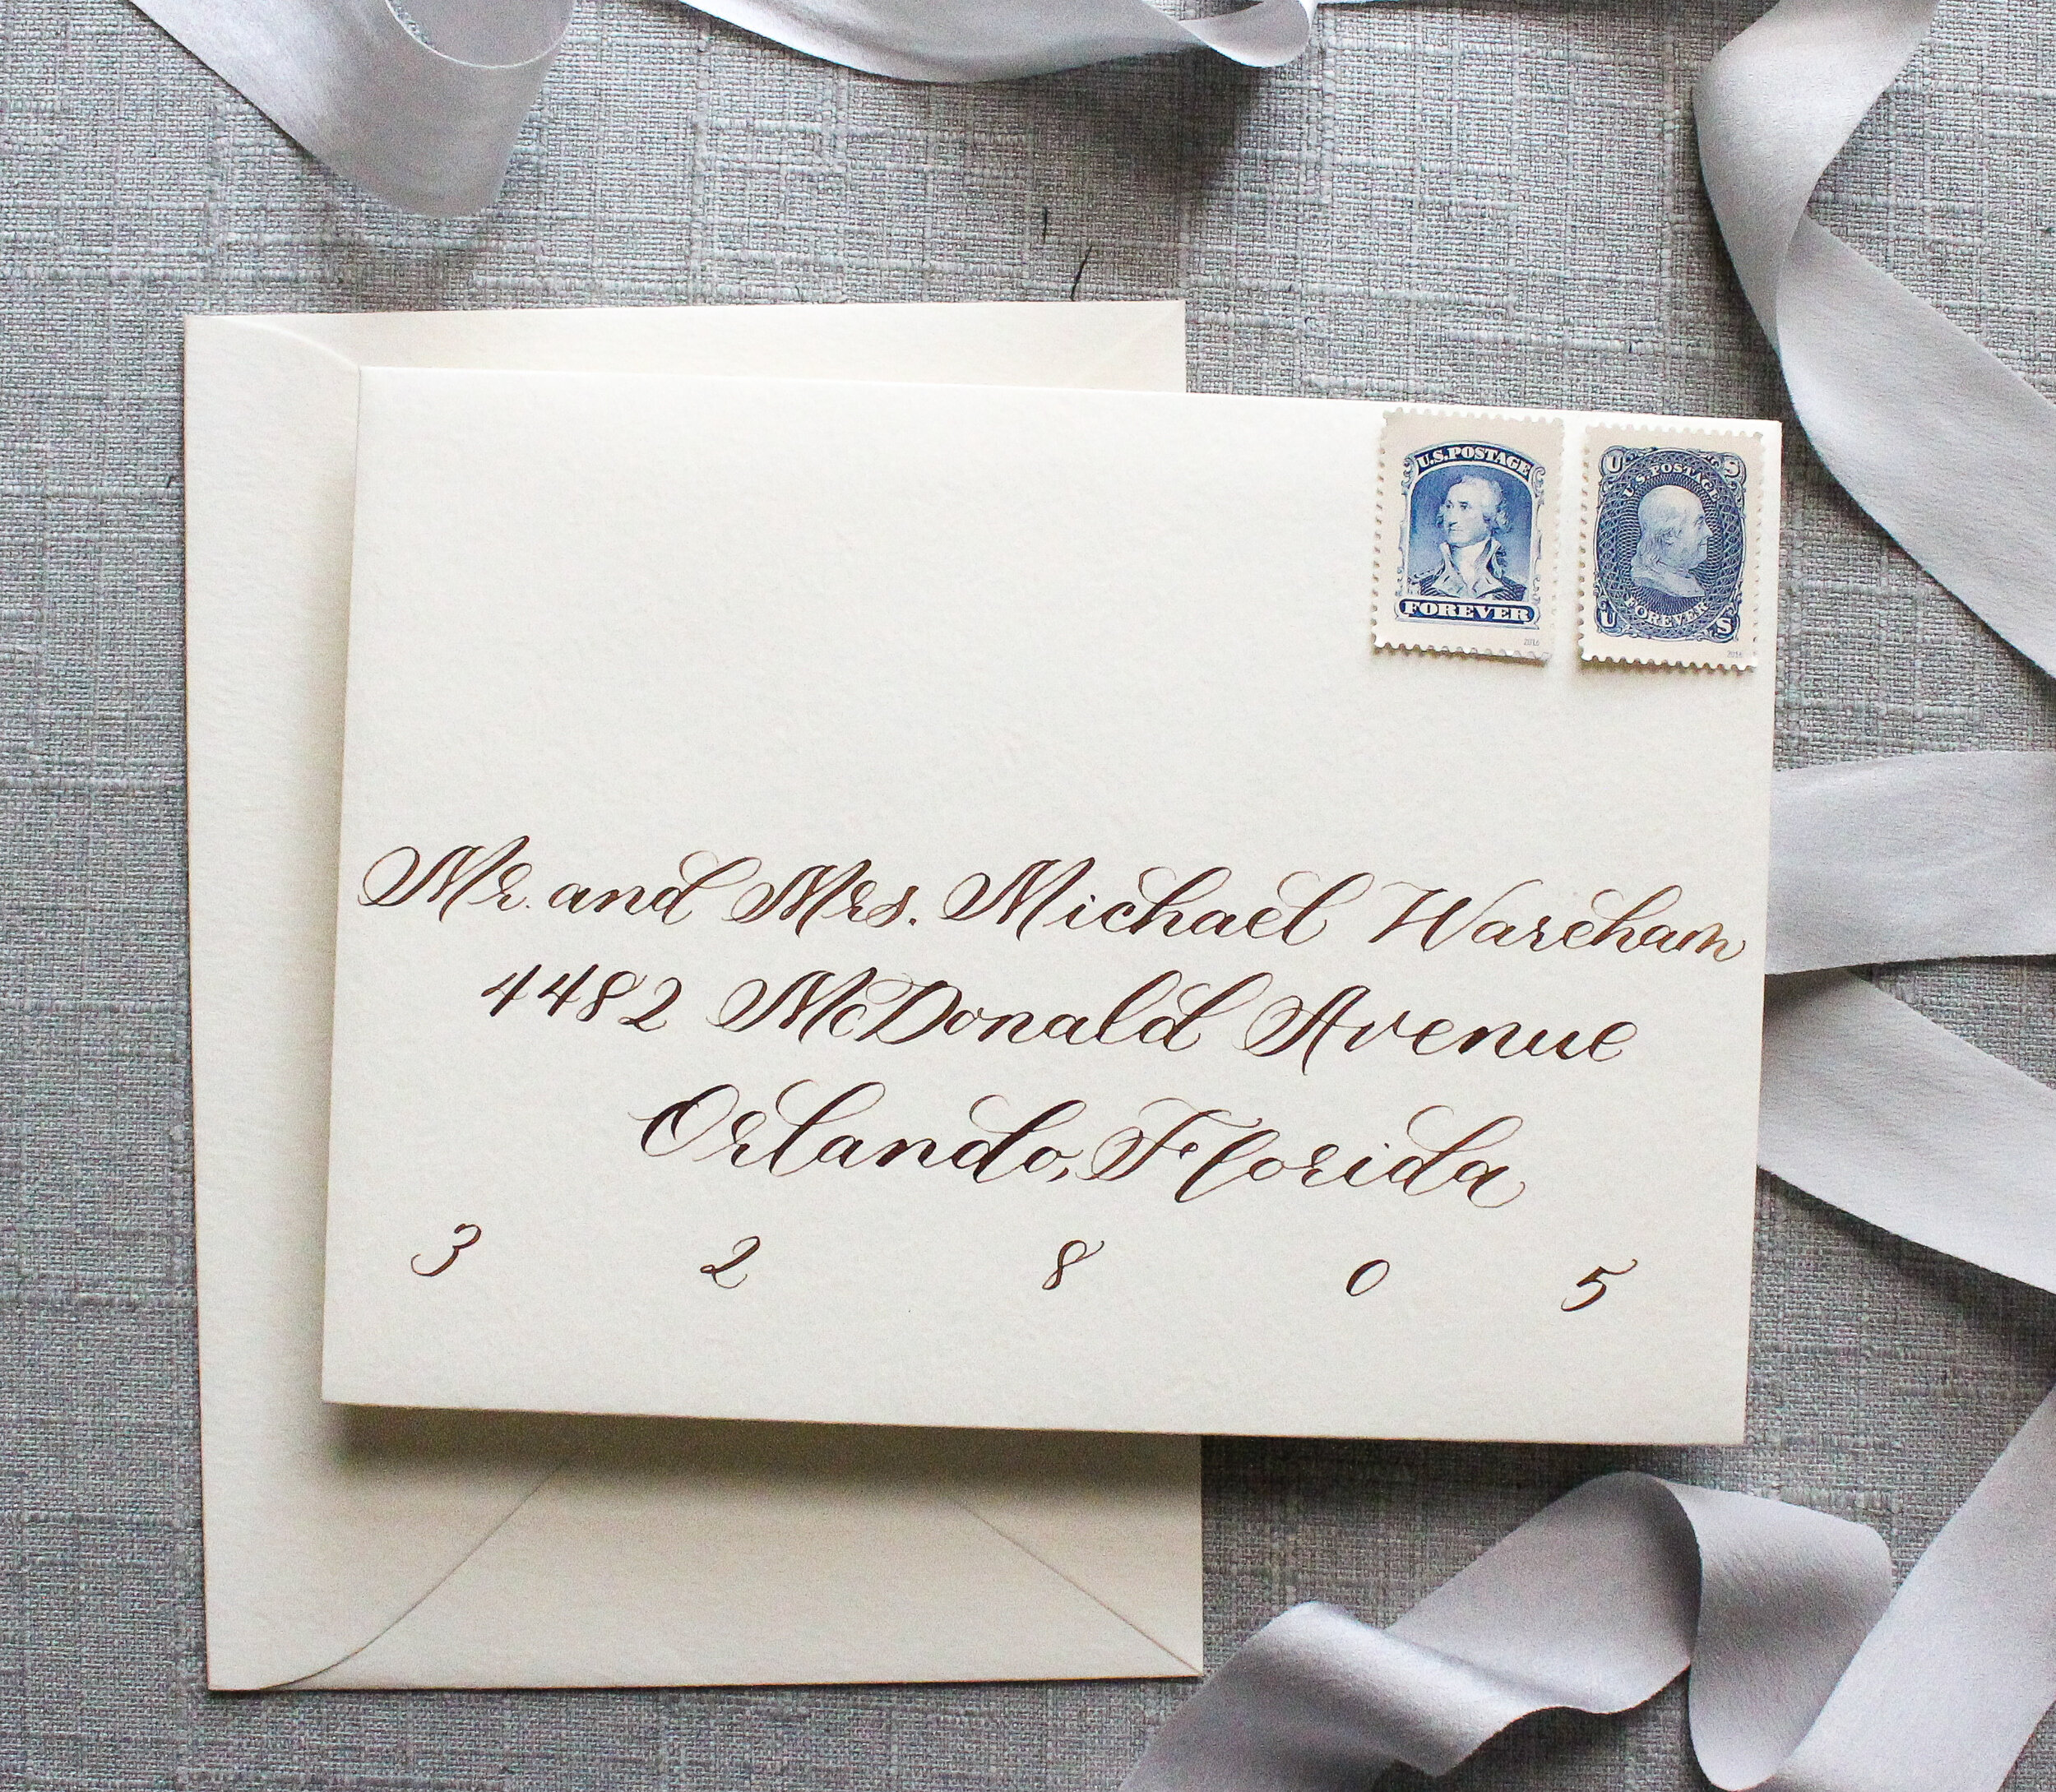 U.S. POSTAGE
FOREVER
2016
U S
U.S. POSTAGE
FOREVER
U S
2016
Mr. and Mrs. Michael Wareham
4482 McDonald Avenue
Orlando, Florida
3 2 8 0 5